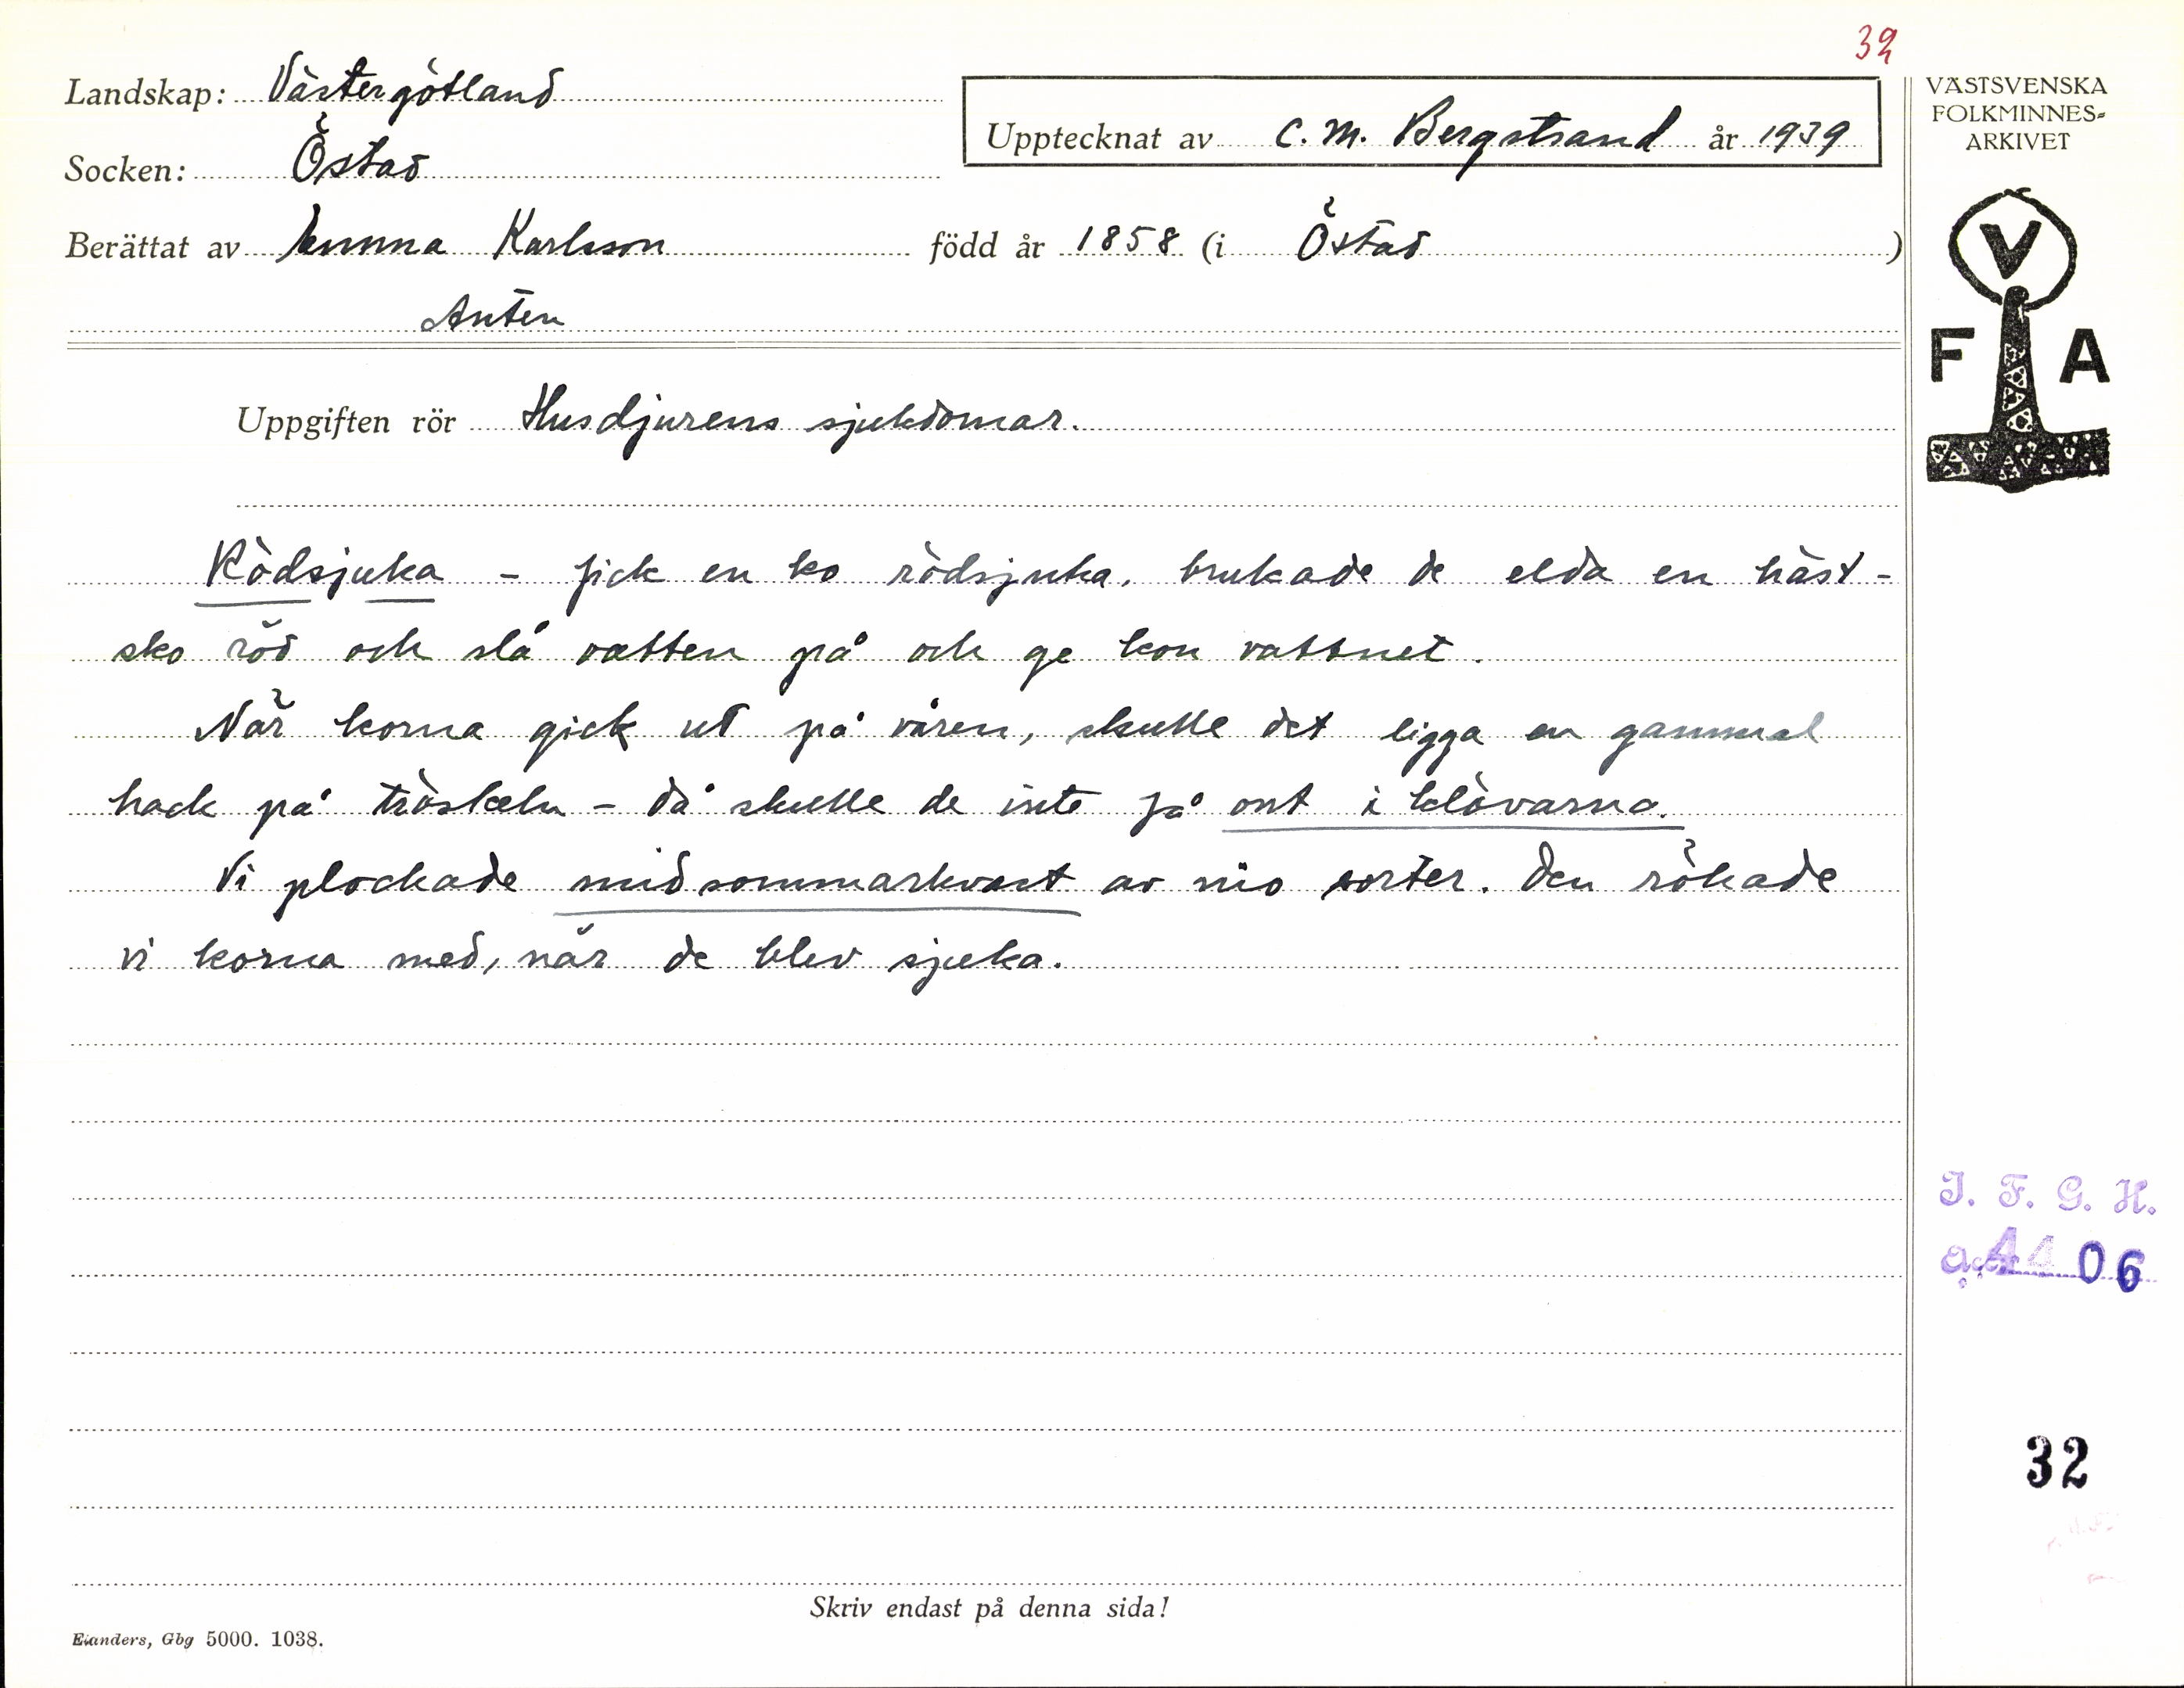 32
Landskap: Västergötland
Socken: Östad
Upptecknat av C. M. Bergstrand år 1939
Berättat av Emma Karlsson född år 1858 (i Östad )
Anten
VÄSTSVENSKA
FOLKMINNES-
ARKIVET
V
F A
Uppgiften rör Husdjurens sjukdomar.
Rödsjuka - fick en ko rödsjuka, brukade de elda en häst-
sko röd och slå vatten på och ge kon vattnet.
När korna gick ut på våren, skulle det ligga en gammal
hack på tröskeln - då skulle de inte få ont i klövarna.
Vi plockade midsommarkvast av nio sorter. Den rökade
vi korna med, när de blev sjuka.
I. F. G. H.
Acc. 4406
32
Skriv endast på denna sida!
Elanders, Gbg 5000. 1038.